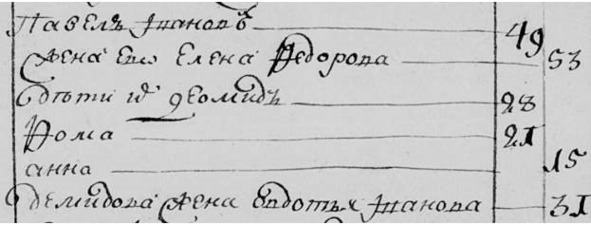 Павелъ Iвановъ 49
Жена ево Елена Ѳедорова 53
дѣти ихъ Деомидъ 28
Ѳома 21
анна 15
демидова жена Евдотья Iванова 31